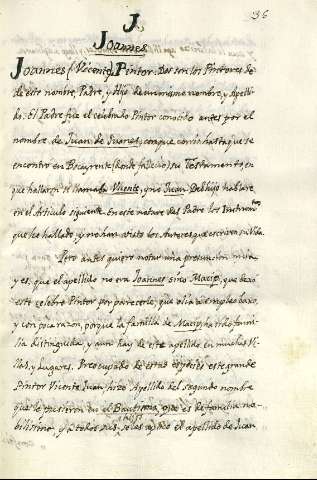 J.
Joannes
Joannes (Vicente) Pintor. Dos son los Pintores de
de este nombre, Padre, y Hijo de un mismo nombre, y Apelli-
do. El Padre fue el celebrado Pintor conocido antes por el
nombre de Juan de Juanes, con que corrio hasta que se
encontro en Bocayrente (donde fallecio) su Testamento, en
que hallaron se llamaba Vicente, y no Juan. Del hijo hablare
en el Articulo siguiente. En este tratare del Padre los
que he hallado, y no han visto los Autores que escriven su Vida.
Pero antes quiero notar una presuncion mia,
y es, que el apellido no era Joannes sino Macip, que dexò
este celebre Pintor por parecerle, que olia a empleo baxo,
y con poca razon, porque la familia de Macip ha sido fami-
lia distinguida, y aun hay de este apellido en muchas Vi-
llas, y Lugares. Preocupado de estas especies este grande
Pintor Vicente Juan, hizo Apellido del segundo nombre
que le pusieron en el Bautismo, que es de familia no-
bilissima, y a todos sus hijos se les aplicò el apellido de Juan